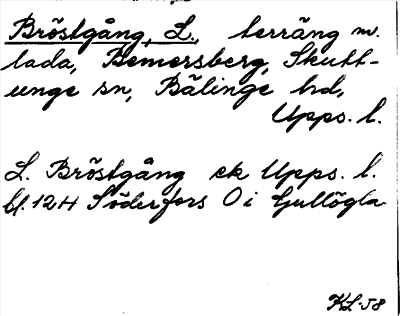 Bröstgång, L., terräng m.
lada, Bemersberg, Skutt-
unge sn, Bälinge hd,
Upps. l.
L. Bröstgång ek Upps. l.
bl. 124 Söderfors O i Gullögla
KL-58